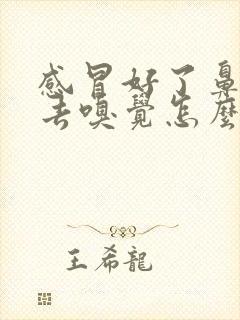 感冒好了鼻
去嗅覺怎麼
王希龍